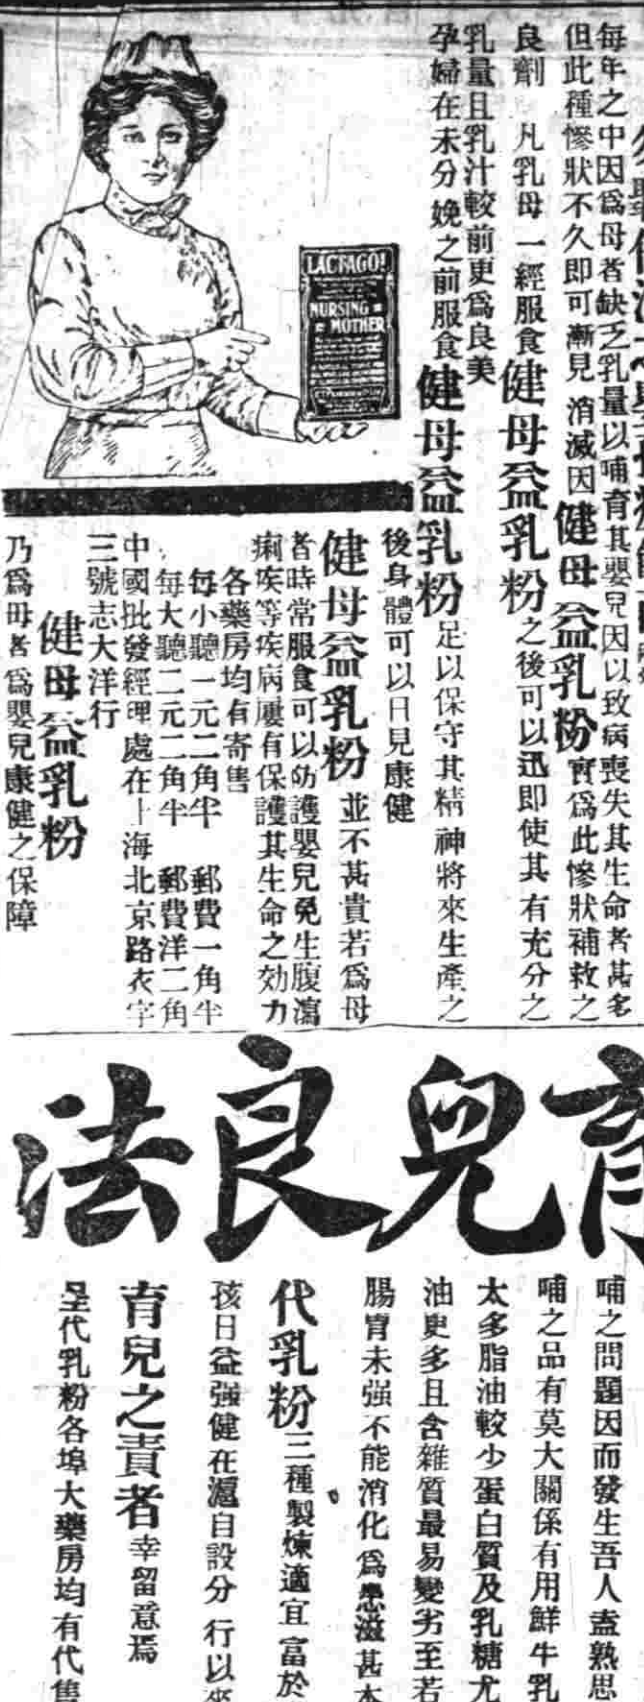 每年之中因爲母者缺乏乳量以哺育其嬰兒因以致病喪失其生命者甚多
但此種慘狀不久即可漸見消滅因健母益乳粉實爲此慘狀補救之
良劑 凡乳母一經服食健母益乳粉之後可以迅即使其有充分之
乳量且乳汁較前更爲良美
孕婦在未分娩之前服食健母益乳粉足以保守其精神將來生產之
後身體可以日見康健
健母益乳粉並不甚貴若爲母
者時常服食可以防護嬰兒免生腹瀉
痢疾等疾病屢有保護其生命之効力
各藥房均有寄售
每小聽一元二角半 郵費一角半
每大聽二元二角半 郵費洋二角
中國批發經理處在上海北京路衣字
三號志大洋行
健母益乳粉
乃爲母者爲嬰兒康健之保障
LACTAGOL
NURSING
MOTHER
育兒良法
哺之問題因而發生吾人盍熟思
哺之品有莫大關係有用鮮牛乳
太多脂油較少蛋白質及乳糖尤
油更多且含雜質最易變劣至若
腸胃未强不能消化爲患滋甚本
代乳粉三種製煉適宜富於
孩日益强健在滬自設分行以來
育兒之責者幸留意焉
代乳粉各埠大藥房均有代售